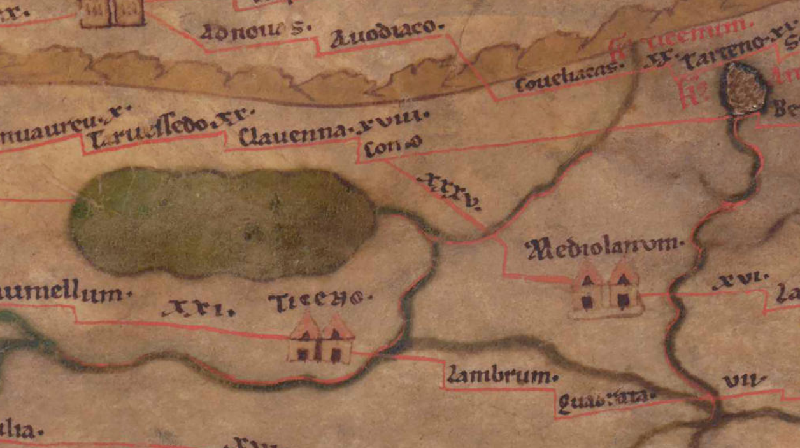 Adnoues.
Auodiaco.
Coueliacas.
XX. Tarteno. XI.
nuaureu. X. Taruessedo. XX. Clauenna. XVIII.
Como
XXXV.
Mediolanum.
XVI.
umellum.
XXI.
Ticeno.
Lambrum.
Quadrata.
VII